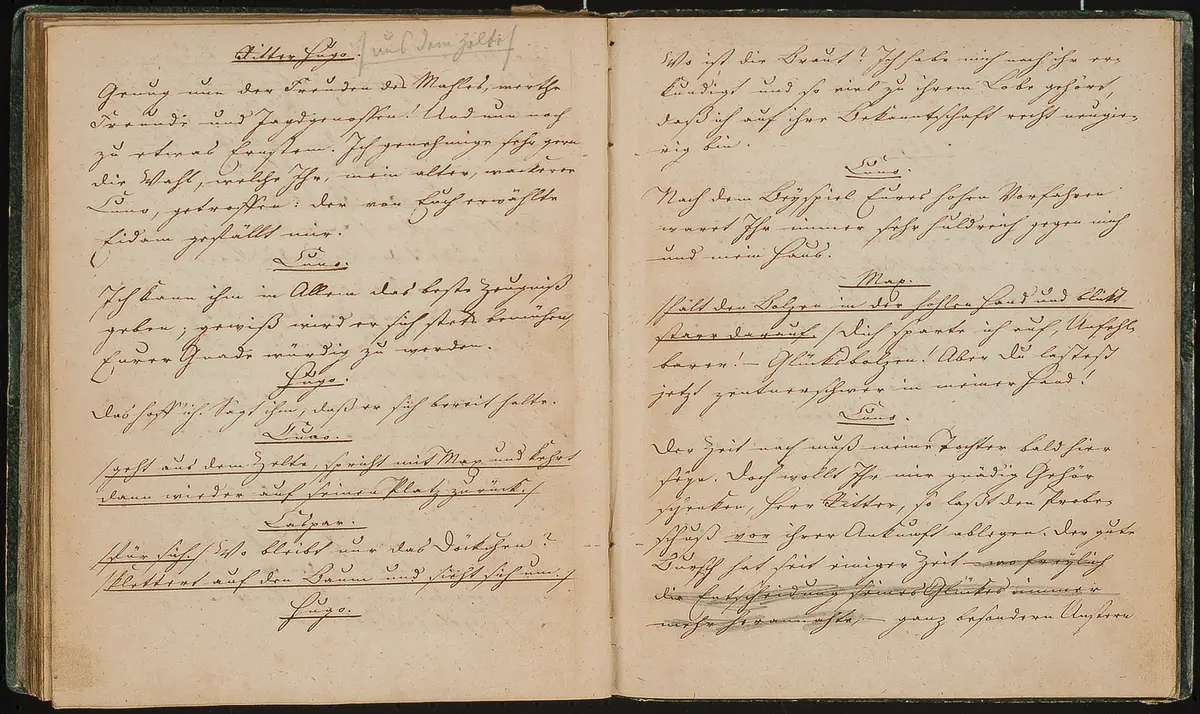 Ritter Hugo. /aus dem Zelte/
Genug nun der Freuden des Mahles, werthe
Freunde und Jagdgenossen! Und nun noch
zu etwas Ernstem. Ich genehmige sehr gern
die Wahl, welche Ihr, mein alter, wackerer
Cuno, getroffen: der von Euch erwählte
Eidam gefällt mir.
Cuno.
Ich kann ihm in Allem das beste Zeugniß
geben; gewiß wird er sich stets bemühen,
Eurer Gnade würdig zu werden.
Hugo.
Das hoff' ich. Sagt ihm, daß er sich bereit halte.
Cuno.
/geht aus dem Zelte, spricht mit Max und kehrt
dann wieder auf seinen Platz zurück./
Caspar.
/für sich./ Wo bleibt nur das Döckchen?
/klettert auf den Baum und sieht sich um./
Hugo.
Wo ist die Braut? Ich habe mich nach ihr er-
kundigt und so viel zu ihrem Lobe gehört,
daß ich auf ihre Bekanntschaft recht neugie-
rig bin.
Cuno.
Nach dem Beyspiel Eures hohen Vorfahren
waret Ihr immer sehr huldreich gegen mich
und mein Haus.
Max.
/hält den Bolzen in der hohlen Hand und blickt
starr darauf./ Dich sparte ich auf, Unfehl-
barer! – Glücksbolzen! Aber Du lastest
jetzt zentnerschwer in meiner Hand!
Cuno.
Der Zeit nach muß meine Tochter bald hier
seyn. Doch wollt Ihr mir gnädig Gehör
schenken, Herr Ritter, so laßt den Probe-
schuß vor ihrer Ankunft ablegen. Der gute
Bursch hat seit einiger Zeit – wo freylich
die Entscheidung seines Glückes immer
mehr herannahte, – ganz besondern Unstern